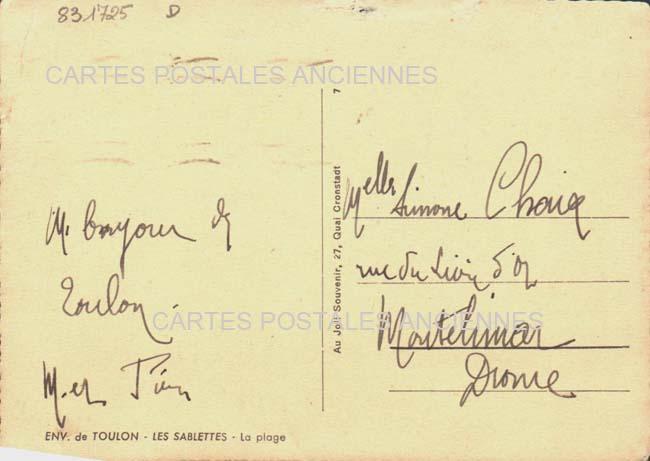 831725 D
CARTES POSTALES ANCIENNES
bonjour de
Toulon.
M. et
ENV. de TOULON - LES SABLETTES - La plage
7
Au Joli Souvenir, 27, Quai Cronstadt
Melle Simone
rue du Lion d'Or
Montélimar
Drome
CARTES POSTALES ANCIENNES